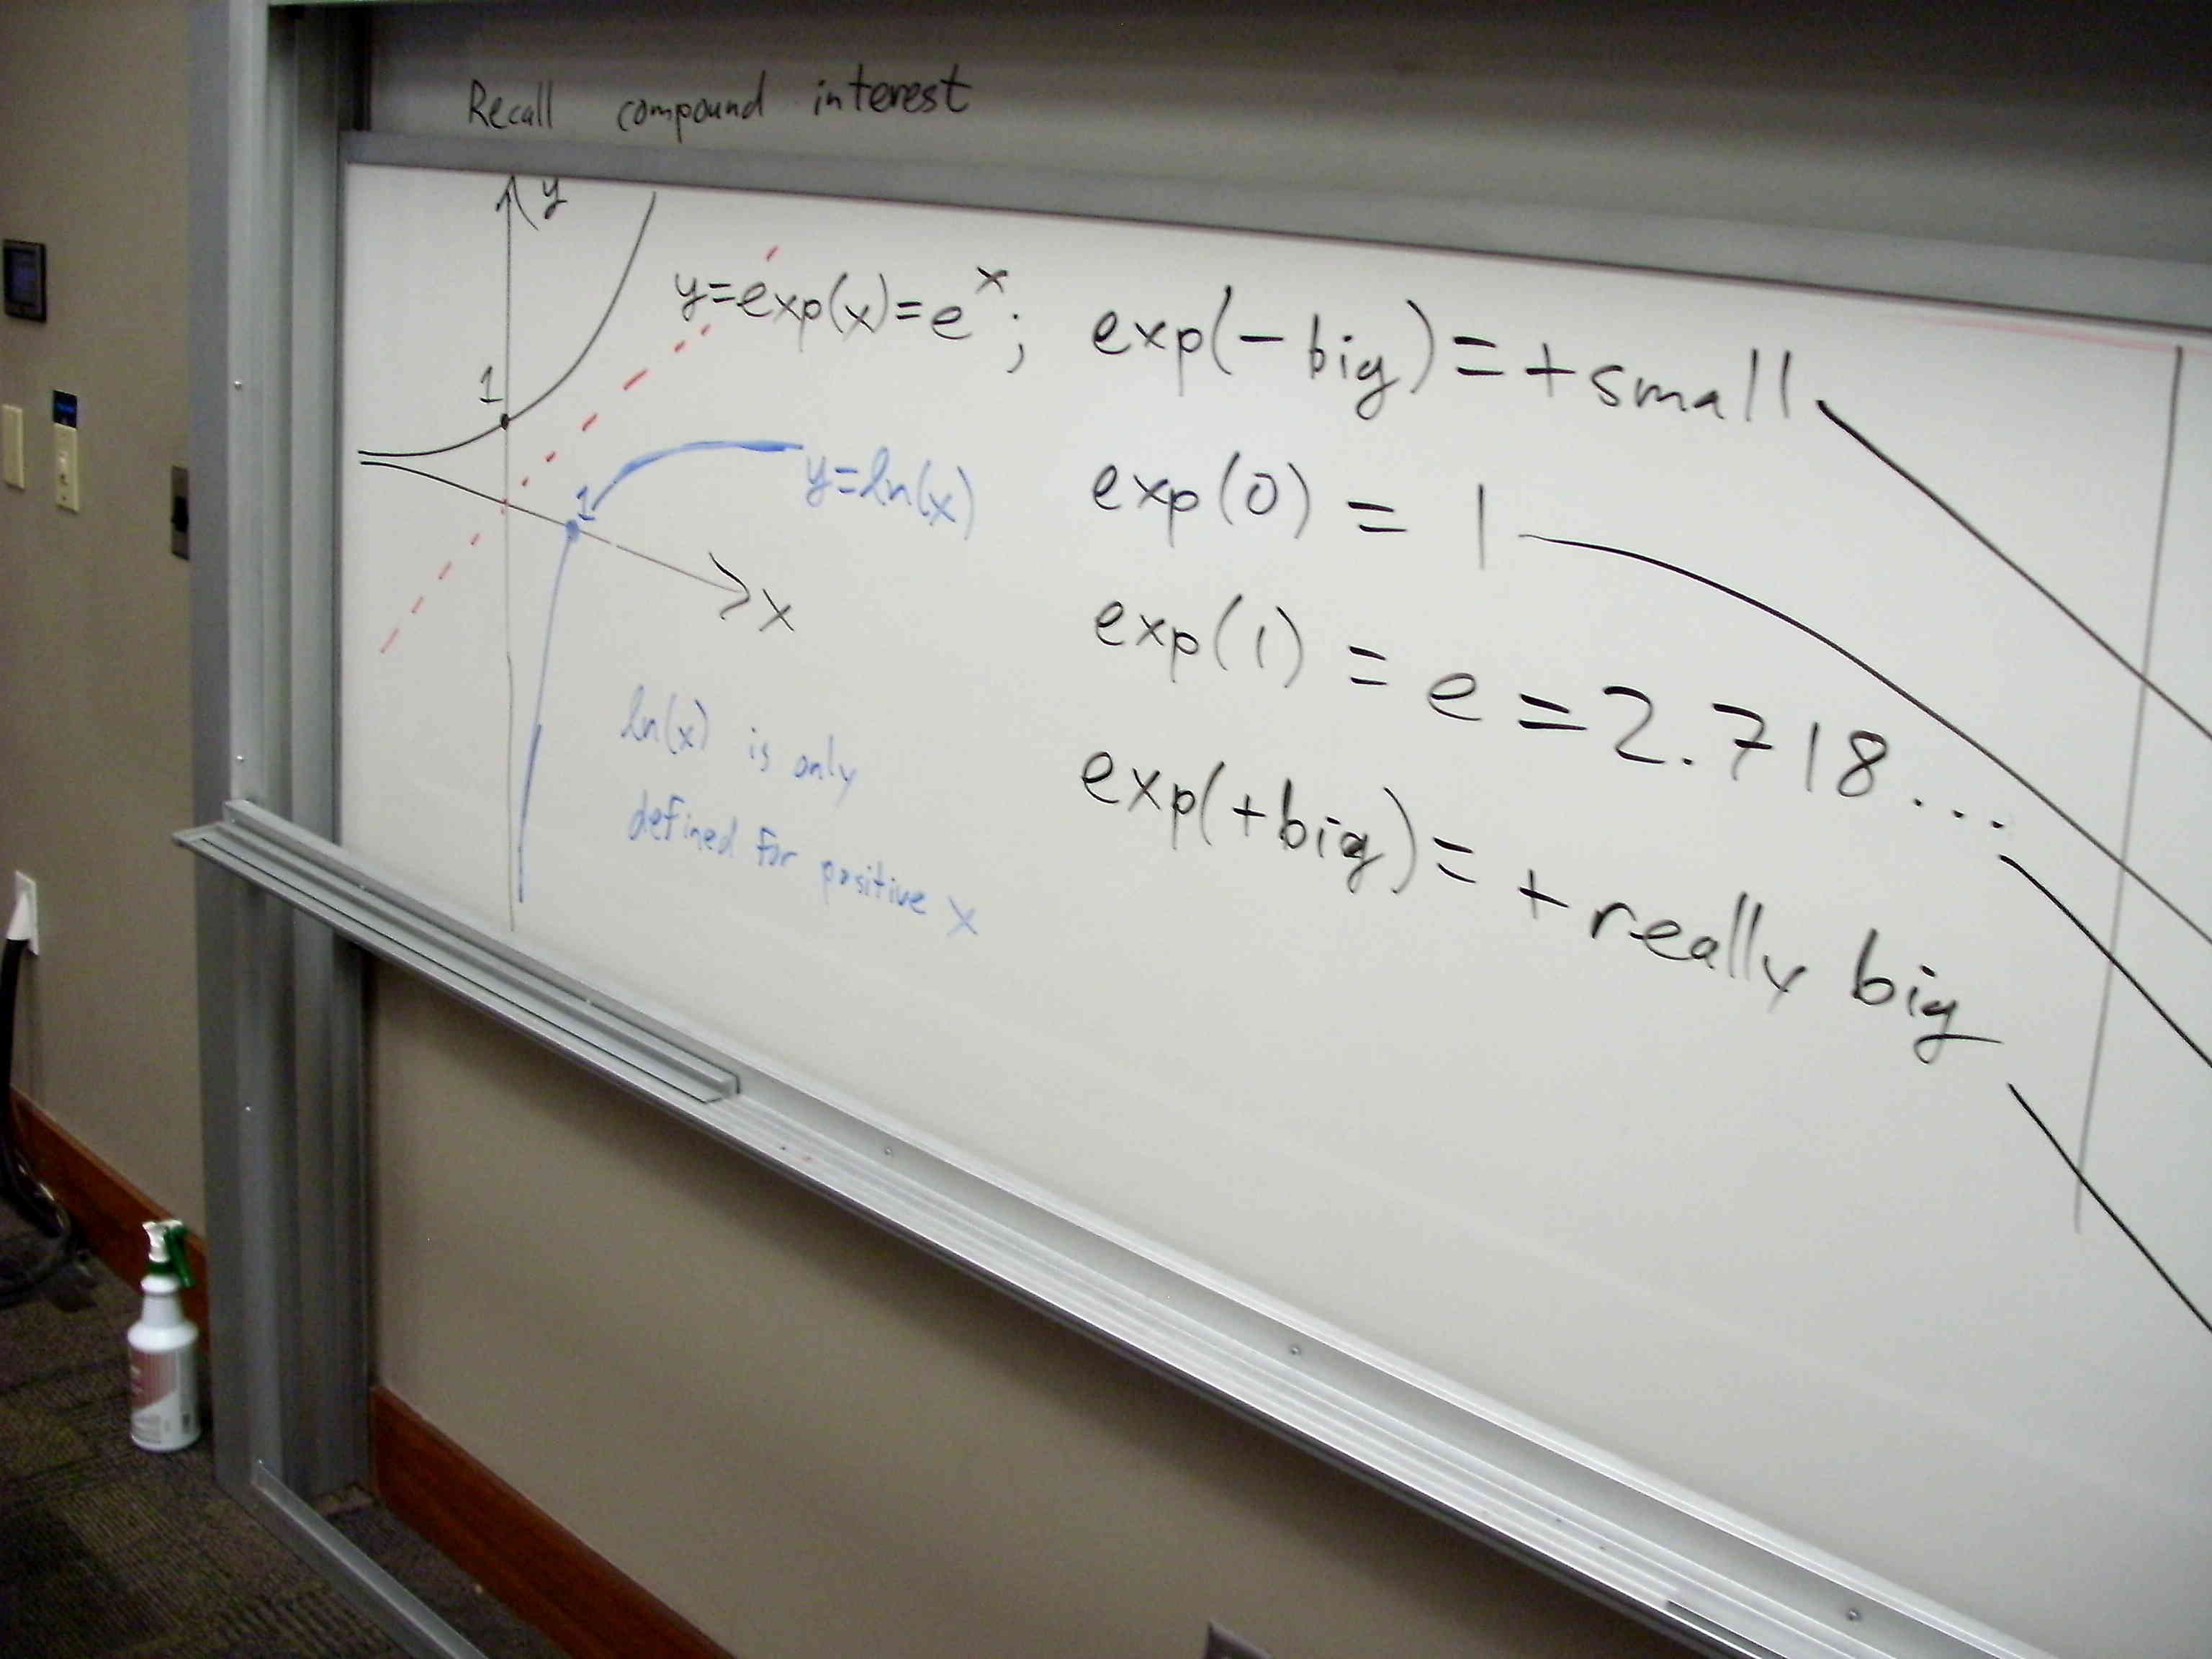 Recall compound interest
y
y=exp(x)=e^x; exp(-big)=+small
1
y=ln(x)
exp(0) = 1
1
x
exp(1) = e = 2.718...
ln(x) is only
defined for positive x
exp(+big)= +really big